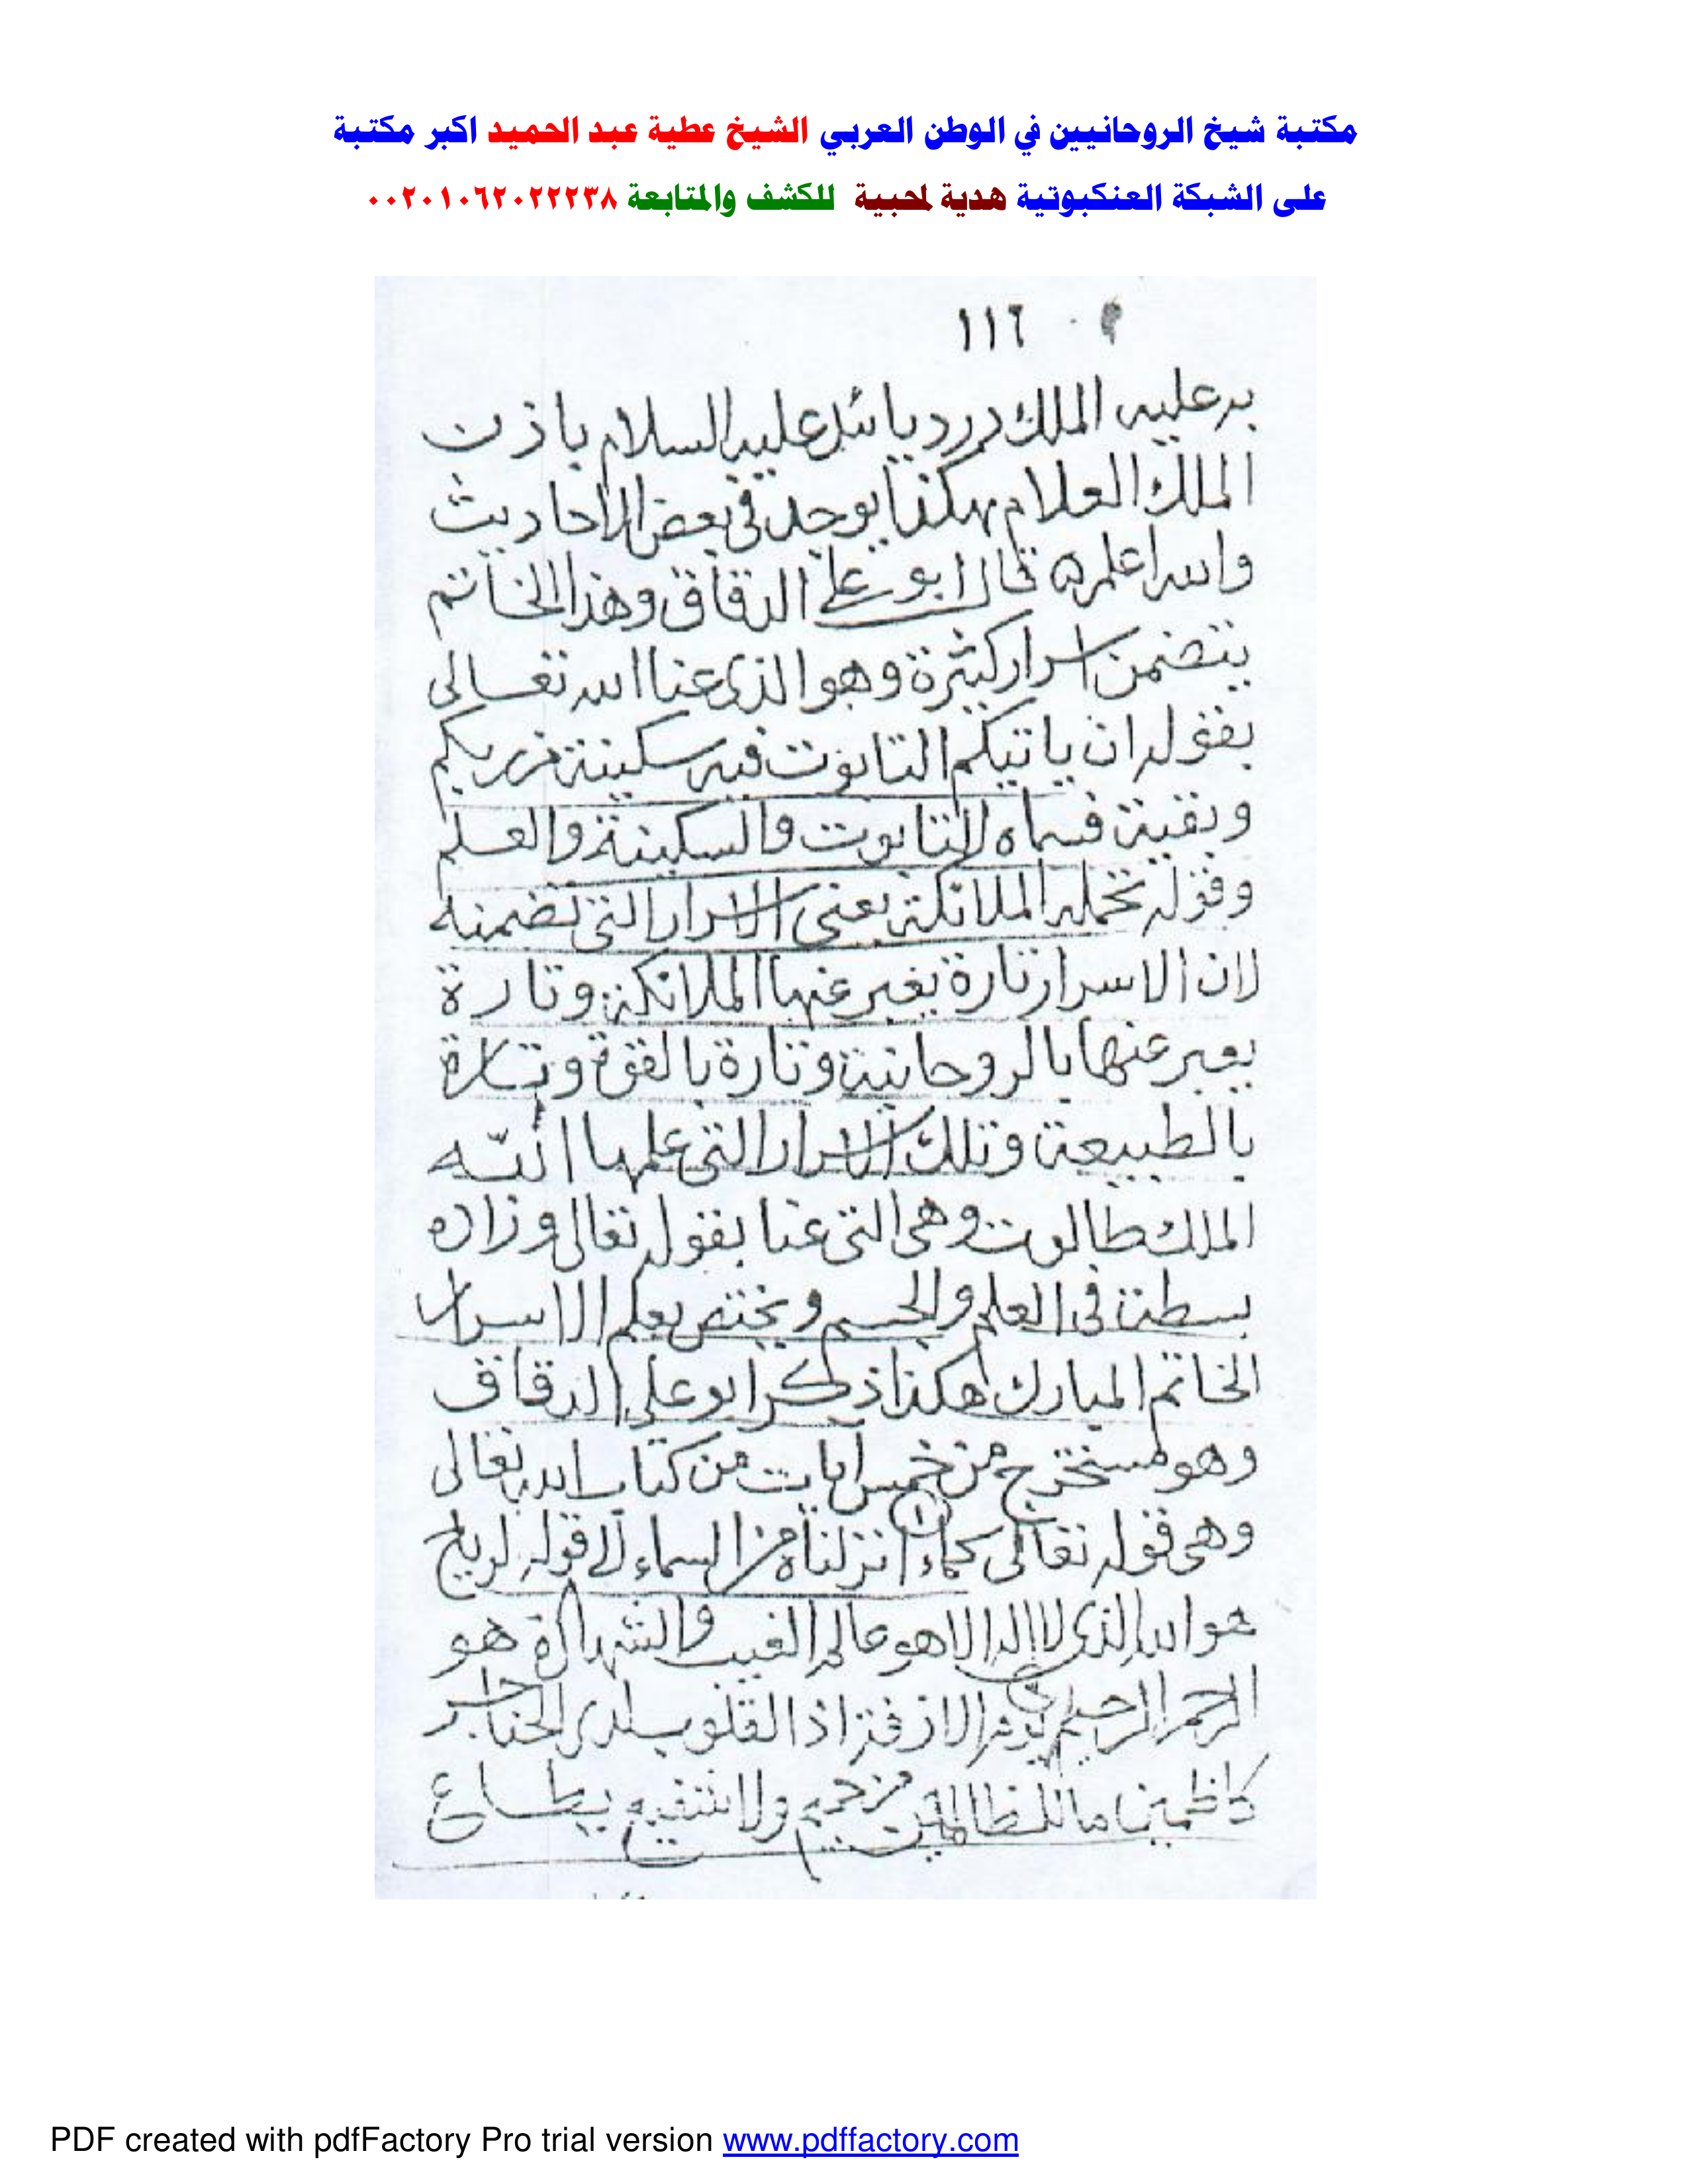 مكتبة شيخ الروحانيين في الوطن العربي الشيخ عطية عبد الحميد اكبر مكتبة
على الشبكة العنكبوتية هدية لمحبية للكشف والمتابعة ٠٠٢٠١٠٦٢٠٢٢٢٣٨
١١٦
به عليه الملك دردبائيل عليه السلام باذن
الملك العلام هكذا يوجد في بعض الاحاديث
والله اعلم ه قال ابو علي الدقاق وهذا الخاتم
يتضمن اسرار كثيرة وهو الذي عنا الله تعالى
بقوله ان ياتيكم التابوت فيه سكينة من ربكم
وبقية فسماه التابوت والسكينة والعلم
وقوله تحمله الملائكة يعني الاسرار التي تضمنه
لان الاسرار تارة يعبر عنها الملائكة وتارة
يعبر عنها بالروحانية وتارة بالقوة وتارة
بالطبيعة وتلك الاسرار التي علمها الله
الملك طالوت وهي التي عنا بقوله تعالى وزاده
بسطة في العلم والجسم ويختص بعلم الاسرار
الخاتم المبارك هكذا ذكر ابو علي الدقاق
وهو مستخرج من خمس ايات من كتاب الله تعالى
وهي قوله تعالى ١ كماء انزلناه من السماء الى قوله الرياح
هو الله الذي لا اله الا هو عالم الغيب والشهادة هو
الرحمن الرحيم يوم الازفة اذ القلوب لدى الحناجر
كاظمين ما للظالمين من حميم ولا شفيع يطاع
PDF created with pdfFactory Pro trial version www.pdffactory.com